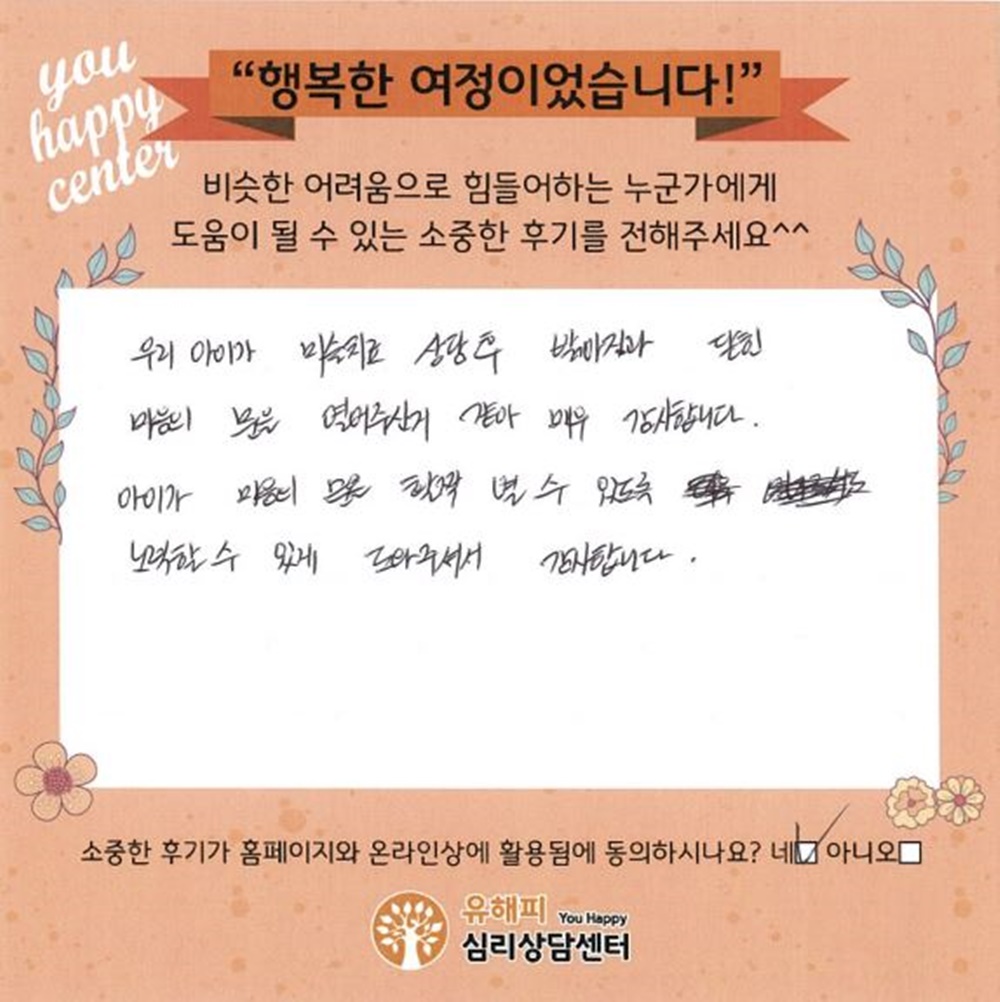 you
happy
center
“행복한 여정이었습니다!”
비슷한 어려움으로 힘들어하는 누군가에게
도움이 될 수 있는 소중한 후기를 전해주세요^^
우리 아이가 미술치료 상담 후 밝아짐과 닫힌
마음의 문을 열어주신거 같아 매우 감사합니다.
아이가 마음의 문을 활짝 열 수 있도록
노력할 수 있게 도와주셔서 감사합니다.
소중한 후기가 홈페이지와 온라인상에 활용됨에 동의하시나요? 네 아니오
유해피 You Happy
심리상담센터